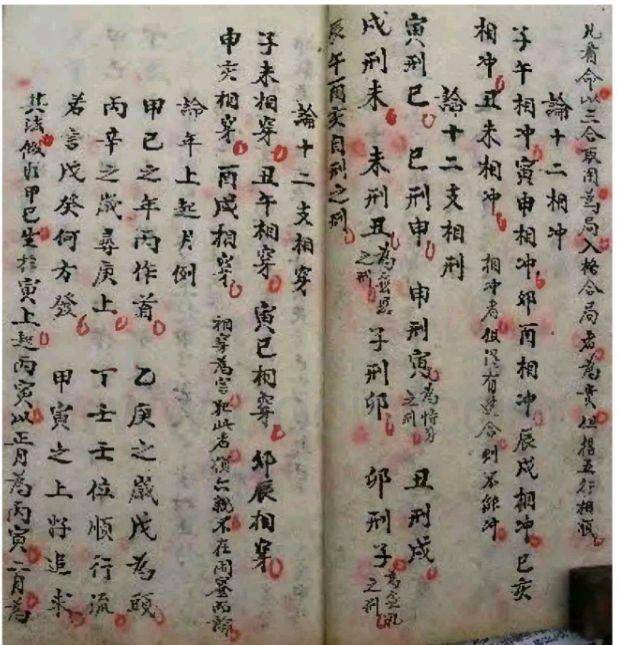 凡看命以三合取用為局入格合局者為貴但揩五行相順
論十二相冲
子午相冲寅申相冲卯酉相冲辰戌相冲巳亥
相冲丑未相冲 相冲者但有合則不能冲
論十二支相刑
寅刑巳 巳刑申 申刑寅為恃势之刑 丑刑戌
戌刑未 未刑丑為無恩之刑 子刑卯 卯刑子為無礼之刑
辰午酉亥自刑之刑
論十二支相穿
子未相穿丑午相穿寅巳相穿卯辰相穿
申亥相穿酉戌相穿 相穿為害犯此者六親不在
論年上起月例
甲己之年丙作首 乙庚之歲戊為頭
丙辛之歲尋庚上 丁壬壬位順行流
若言戊癸何方發 甲寅之上好追求
其法假如甲己生於寅上起丙寅以正月為丙寅二月為